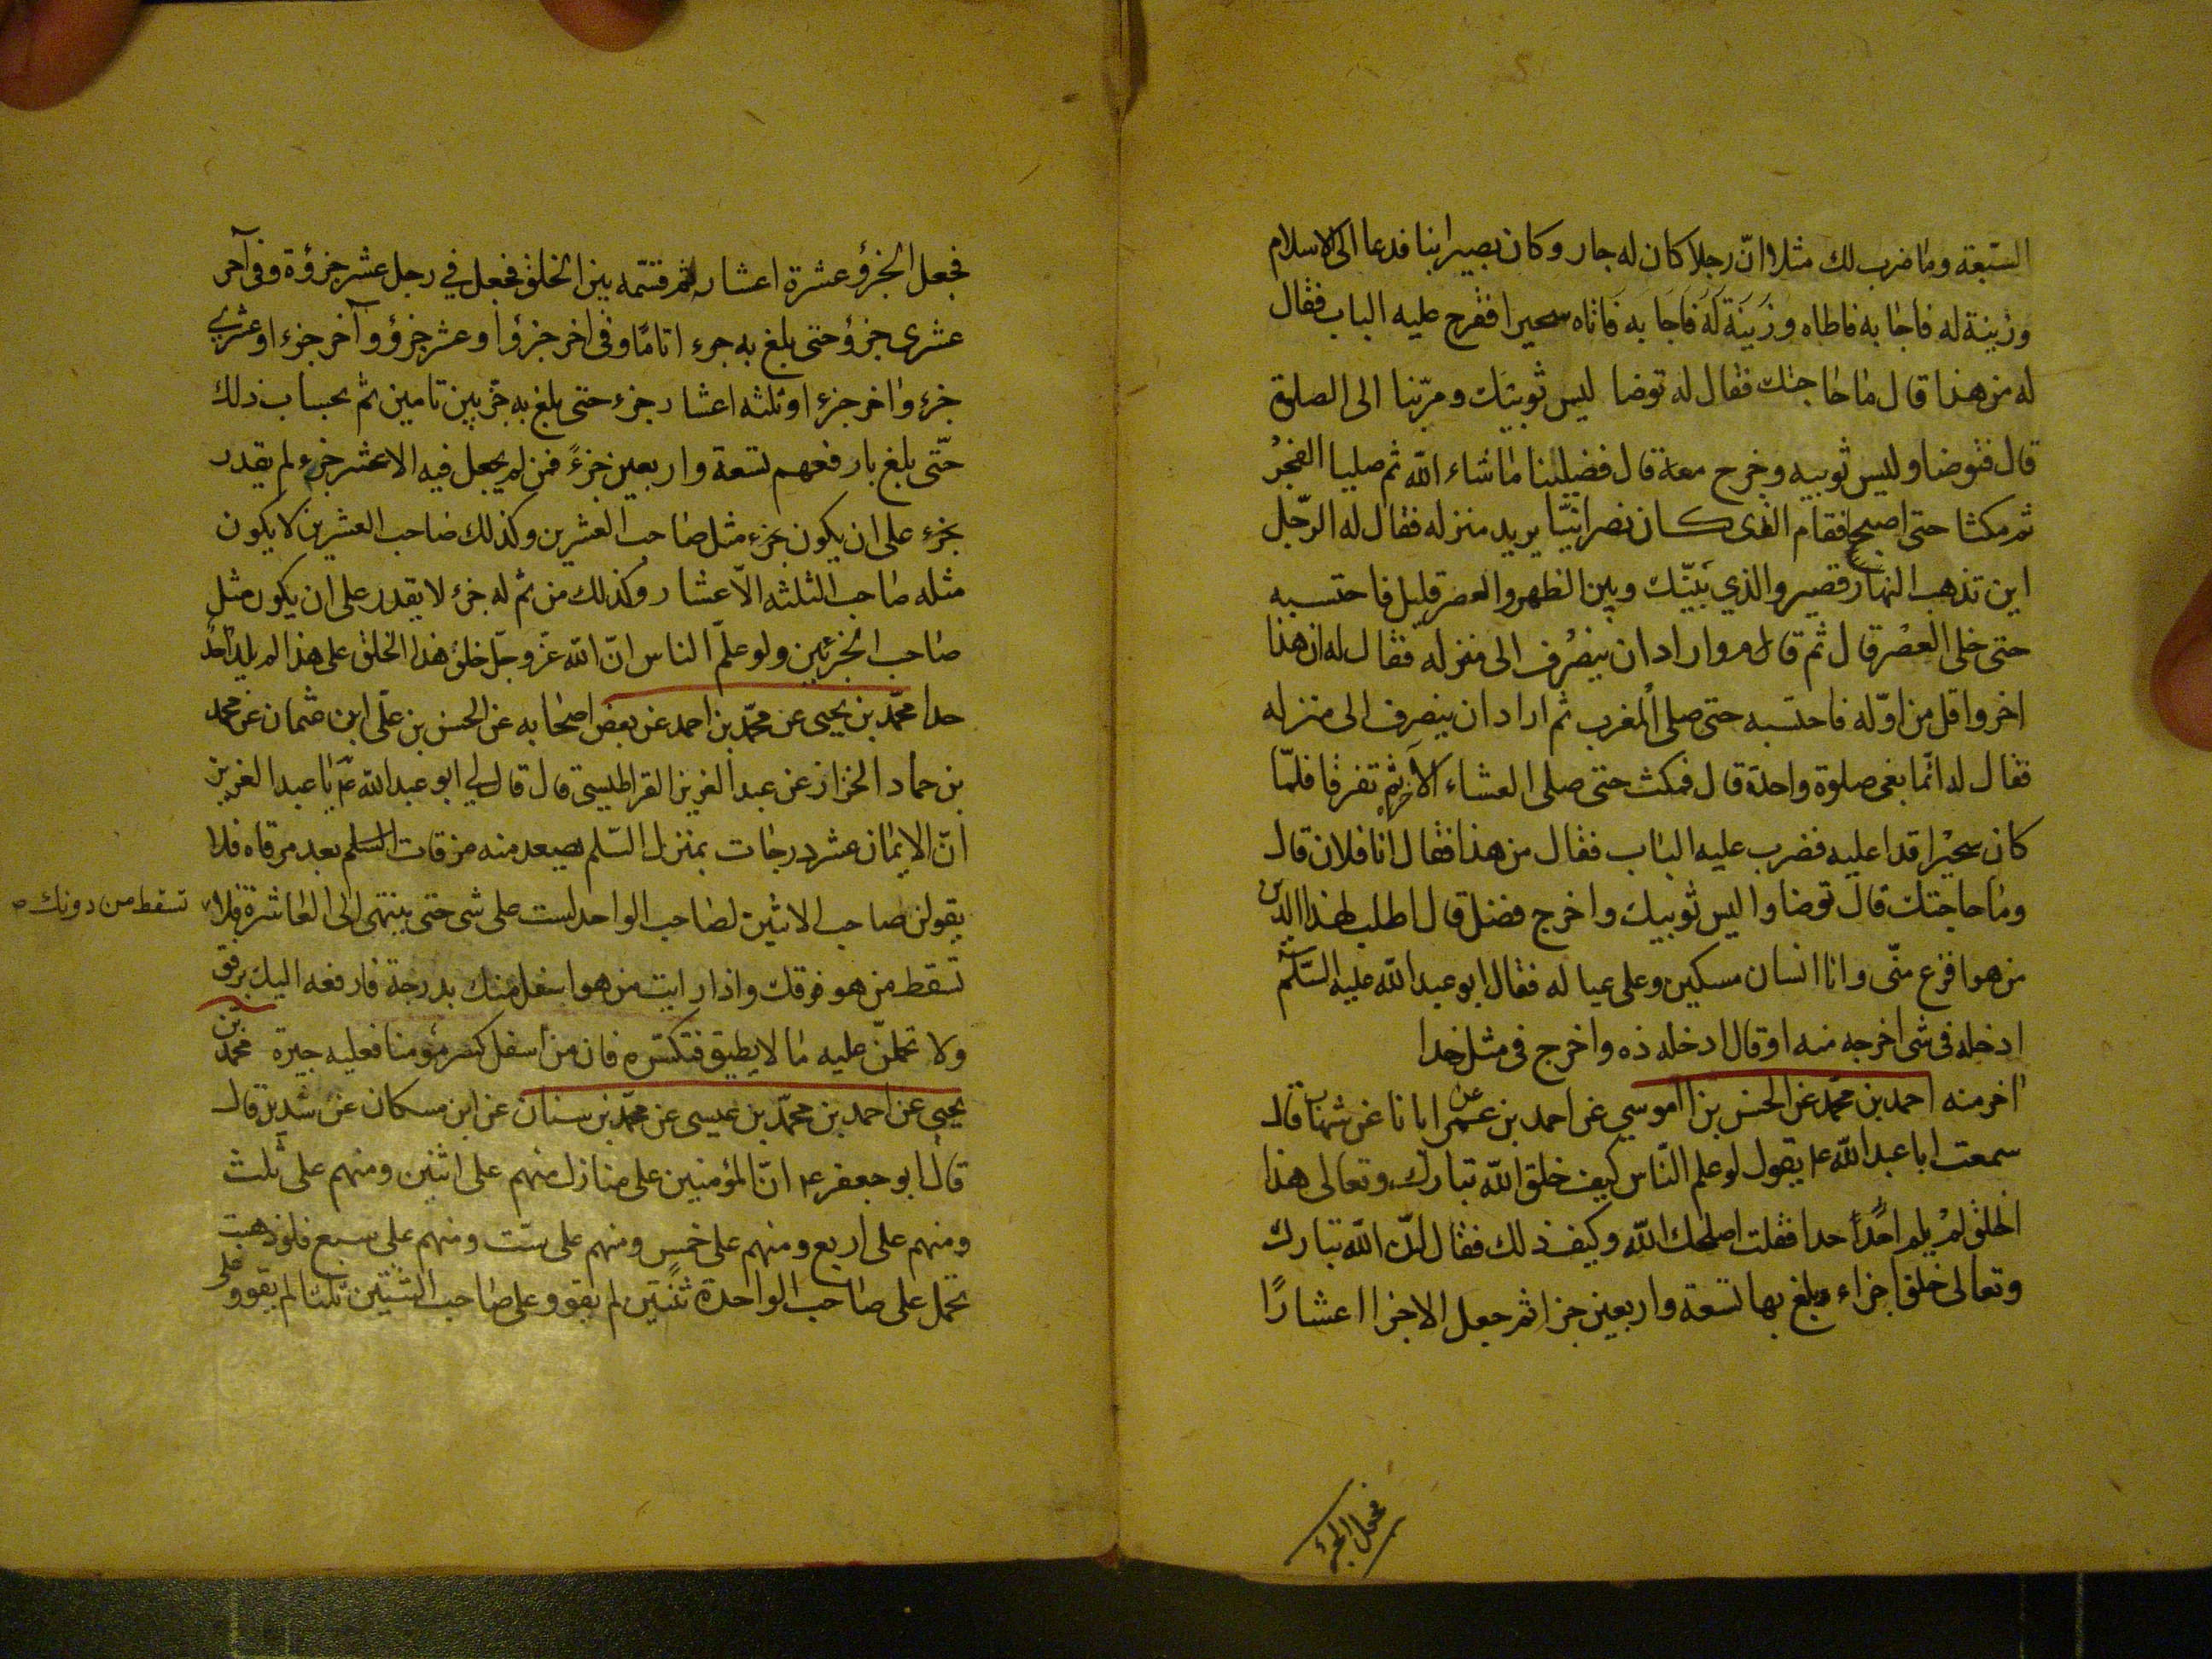 السبعة وما ضرب لك مثلا وانّ رجلا كان له جار وكان بصيرانيا فدعا الى الاسلام
وزينة له فاجا به فاطاه وزينة له فاجا به فاتاه سحيرا فقرح عليه الباب فقال
له من هذا قال ما حاجتك فقال له توضا ليس ثوبيك ومرّبنا الى الصلوة
قال فتوضا وليس ثوبيه وخرج معه قال فضلينا ما شاء الله ثم صليا الفجر
ثم مكثا حتى اصبح فقام الذى كان نصرانيّا يريد منزله فقال له الرّجل
اين تذهب النهار قصير والذي بينك وبين الظهر والعصر قليل فاحتسبه
حتى صلى العصر قال ثم قام واراد ان ينصرف الى منزله فقال له ان هذا
اخر واقل من اوّله فاحتسبه حتى صلى المغرب ثم اراد ان ينصرف الى منزله
فقال له انّما بقى صلوة واحدة قال فمكث حتى صلى العشاء الآخرة ثم تفرقا فلمّا
كان سحيرا قدا عليه فضرب عليه الباب فقال من هذا فقال انا فلان قال
وما حاجتك قال توضا والبس ثوبيك واخرج فضل قال اطلب لهذا الدين
من هو افرع منّى وانا انسان مسكين وعلى عياله فقال ابو عبد الله عليه السّلم
ادخله فى شى اخرجه منه او قال ادخله ذه واخرج فى مثل هذا
اخر منه احمد بن محمّد عن الحسن بن ا موسي عن احمد بن عمر عن ابانا عن شهاب قال
سمعت ابا عبد الله ع يقول لو علم النّاس كيف خلق الله تبارك وتعالى هذا
الخلق لم يلم احدًا احدا فقلت اصلحك الله وكيف ذلك فقال انّ الله تبارك
وتعالى خلق اجزاء وبلغ بها تسعة واربعين جزا ثم جعل الاجزا اعشارًا
فجعل الجزؤ
فجعل الجزؤ عشرة اعشار ثم قسّمه بين الخلق فجعل في رجل عشر جزؤة وفى آخر
عشرى جزؤ حتى بلغ به جزء اتامّا وفى اخر جزؤ او عشر جزؤ وآخر جزء او عشري
جزء واخر جزء او ثلثه اعشار جزء حتى بلغ به جزيين تامين ثم بحساب ذلك
حتّى بلغ بارفعهم تسعة واربعين جزءً فمن لم يجعل فيه الا عشر جزء لم يقدر
بجزء على ان يكون بجزء مثل صاحب العشرين وكذلك صاحب العشرين لا يكون
مثله صاحب الثلثه الاعشار وكذلك من ثم له جزء لا يقدر على ان يكون مثل
صاحب الجزيين ولو علم الناس انّ الله عزّ وجلّ خلق هذا الخلق على هذا لم يلم احد احدا
محمّد بن يحيى عن محمّد بن احمد عن بعض اصحابه عن الحسن بن علّى ابن عثمان عن محمد
بن حماد الخزاز عن عبد العزيز القراطيسى قال قال لي ابو عبد الله ع يا عبد العزيز
انّ الايمان عشر درجات بمنزل السّلم يصعد منه مرقات السلم بعد مرقاه فلا
يقولن صاحب الاثنين لصاحب الواحد لست على شى حتى ينتهى الى العاشرة فلا
تسقط من دونك ص
تسقط من هو فرقك واذا رايت من هو اسفل منك بدرجة فارفعه اليك برفق
ولا تحملنّ عليه ما لا يطيق فتكسّره فان من أسفل كسر مؤمنا فعليه جيرة محمد بن
يحيى عن احمد بن محمّد بن عيسى عن محمّد بن سنان عن ابن مسكان عن شدير قال
قال ابو جعفر ع انّ المؤمنين على منازل منهم على اثنين ومنهم على ثلث
ومنهم على اربع ومنهم على خمس ومنهم على ستّ ومنهم على سبع فلو ذهبت
تحمل على صاحب الواحدة ثنتين لم يقوو وعلى صاحب الثنتين ثلثا لم يقوو على